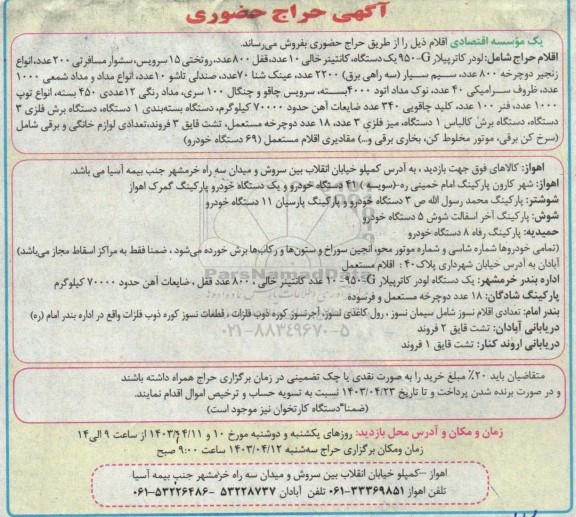 آگهی حراج حضوری
یک مؤسسه اقتصادی اقلام ذیل را از طریق حراج حضوری بفروش می‌رساند.
اقلام حراج شامل: لودر کاترپیلار ۹۵۰G یک دستگاه، کانتینر خالی ۱۰ عدد، قفل ۸۰۰ عدد، روتختی ۱۵ سرویس، سشوار مسافرتی ۲۰۰ عدد، انواع
زنجیر دوچرخه ۸۰۰ عدد، سیم سیار (سه راهی برق) ۲۲۰۰ عدد، عینک شنا ۷۰ عدد، صندلی تاشو ۱۰ عدد، انواع مداد و مداد شمعی ۱۰۰۰
عدد، ظروف سرامیکی ۴۰ عدد، نوک مداد اتود ۴۰۰۰ بسته، سرویس چاقو و چنگال ۱۰۰ سری، مداد رنگی ۱۲ عددی ۴۵۰ بسته، انواع توپ
۱۰۰۰ عدد، فنر ۱۰۰ عدد، کلید چاقویی ۳۴۰ عدد ضایعات آهن حدود ۷۰۰۰۰ کیلوگرم، دستگاه بسته‌بندی ۱ دستگاه، دستگاه برش فلزی ۳
دستگاه، دستگاه برش کالباس ۱ دستگاه، میز فلزی ۳ عدد، ۱۸ عدد دوچرخه مستعمل، تشت قایق ۳ فروند، تعدادی لوازم خانگی و برقی شامل
(سرخ کن برقی، موتور مخلوط کن، بخاری برقی و..) مقادیری اقلام مستعمل (۶۹ دستگاه خودرو)
اهواز: کالاهای فوق جهت بازدید ، به آدرس کمپلو خیابان انقلاب بین سروش و میدان سه راه خرمشهر جنب بیمه آسیا می باشد.
اهواز: شهر کارون پارکینگ امام خمینی ره-(سویسه) ۴۱ دستگاه خودرو و یک دستگاه خودرو پارکینگ گمرک اهواز
شوشتر: پارکینگ محمد رسول الله ص ۳ دستگاه خودرو و پارکینگ پارسیان ۱۱ دستگاه خودرو
شوش: پارکینگ آخر اسفالت شوش ۵ دستگاه خودرو
حمیدیه: پارکینگ رفاه ۸ دستگاه خودرو
(تمامی خودروها شماره شاسی و شماره موتور محو، انجین سوراخ و ستون‌ها و رکاب‌ها برش خورده می‌شود ، ضمنا فقط به مراکز اسقاط مجاز می‌باشد)
آبادان به آدرس خیابان شهرداری پلاک ۴۰ : اقلام مستعمل
اداره بندر خرمشهر: یک دستگاه لودر کاترپیلار ۹۵۰G- ۱۰ عدد کانتینر خالی ، ۸۰۰ عدد قفل ، ضایعات آهن حدود ۷۰۰۰۰ کیلوگرم
پارکینگ شادگان: ۱۸ عدد دوچرخه مستعمل و فرسوده
بندر امام: تعدادی اقلام نسوز شامل سیمان نسوز ، رول کاغذی نسوز، آجر نسوز کوره ذوب فلزات ، قطعات نسوز کوره ذوب فلزات واقع در اداره بندر امام (ره)
دریابانی آبادان: تشت قایق ۲ فروند
دریابانی اروند کنار: تشت قایق ۱ فروند
ParsNamadData
۰۲۱-۸۸۳۴۹۶۷۰-۵
متقاضیان باید ۲۰٪ مبلغ خرید را به صورت نقدی یا چک تضمینی در زمان برگزاری حراج همراه داشته باشند
و در صورت برنده شدن پرداخت و تا تاریخ ۱۴۰۳/۰۴/۲۳ نسبت به تسویه حساب و ترخیص اموال اقدام نمایند.
(ضمنا "دستگاه کارتخوان نیز موجود است)
زمان و مکان و آدرس محل بازدید: روزهای یکشنبه و دوشنبه مورخ ۱۰ و ۱۴۰۳/۰۴/۱۱ از ساعت ۹ الی ۱۴
زمان ومکان برگزاری حراج سه‌شنبه ۱۴۰۳/۰۴/۱۲ ساعت ۹:۰۰ صبح
اهواز -کمپلو خیابان انقلاب بین سروش و میدان سه راه خرمشهر جنب بیمه آسیا
تلفن اهواز ۳۳۳۶۹۸۵۱-۰۶۱ تلفن آبادان ۵۳۲۲۸۷۳۷ -۵۳۲۲۶۴۸۶-۰۶۱